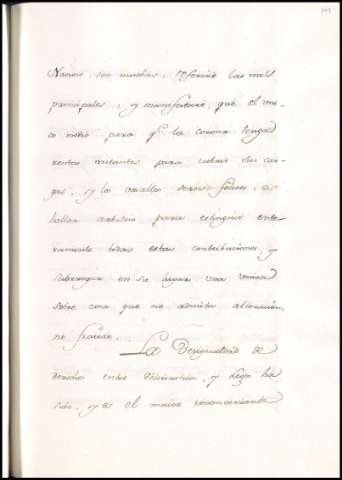 Navios, son muchas; referiré las mas
principales, y manifestaré, que el uni-
co medio para qe. la corona tenga
rentas bastantes para cubrir sus car-
gas, y los vasallos sean felices, es
hallar arbitrio para extinguir ente-
ramente todas estas contribuciones, y
subrogar en su lugar una unica
sobre cosa que no admita alteracion,
ni fraude.
La desigualdad de
derechos entre Eclesiasticos, y Legos ha
sido, y es el maior inconveniente